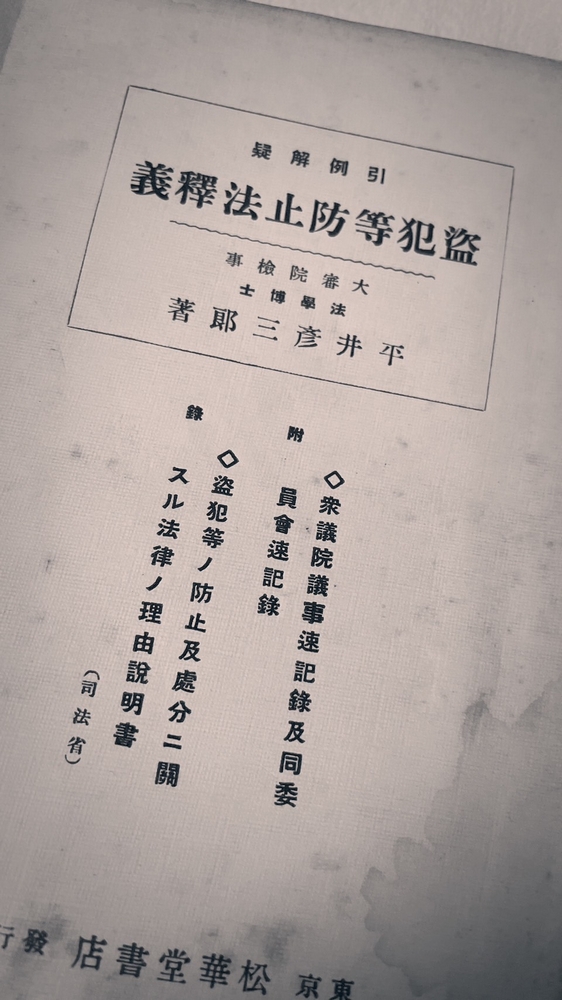 引例解疑
盜犯等防止法釋義
大審院檢事
法學博士
平井彥三郎著
附錄
◇衆議院議事速記錄及同委
員會速記錄
◇盜犯等ノ防止及處分ニ關
スル法律ノ理由說明書
(司法省)
東京 松華堂書店 發行